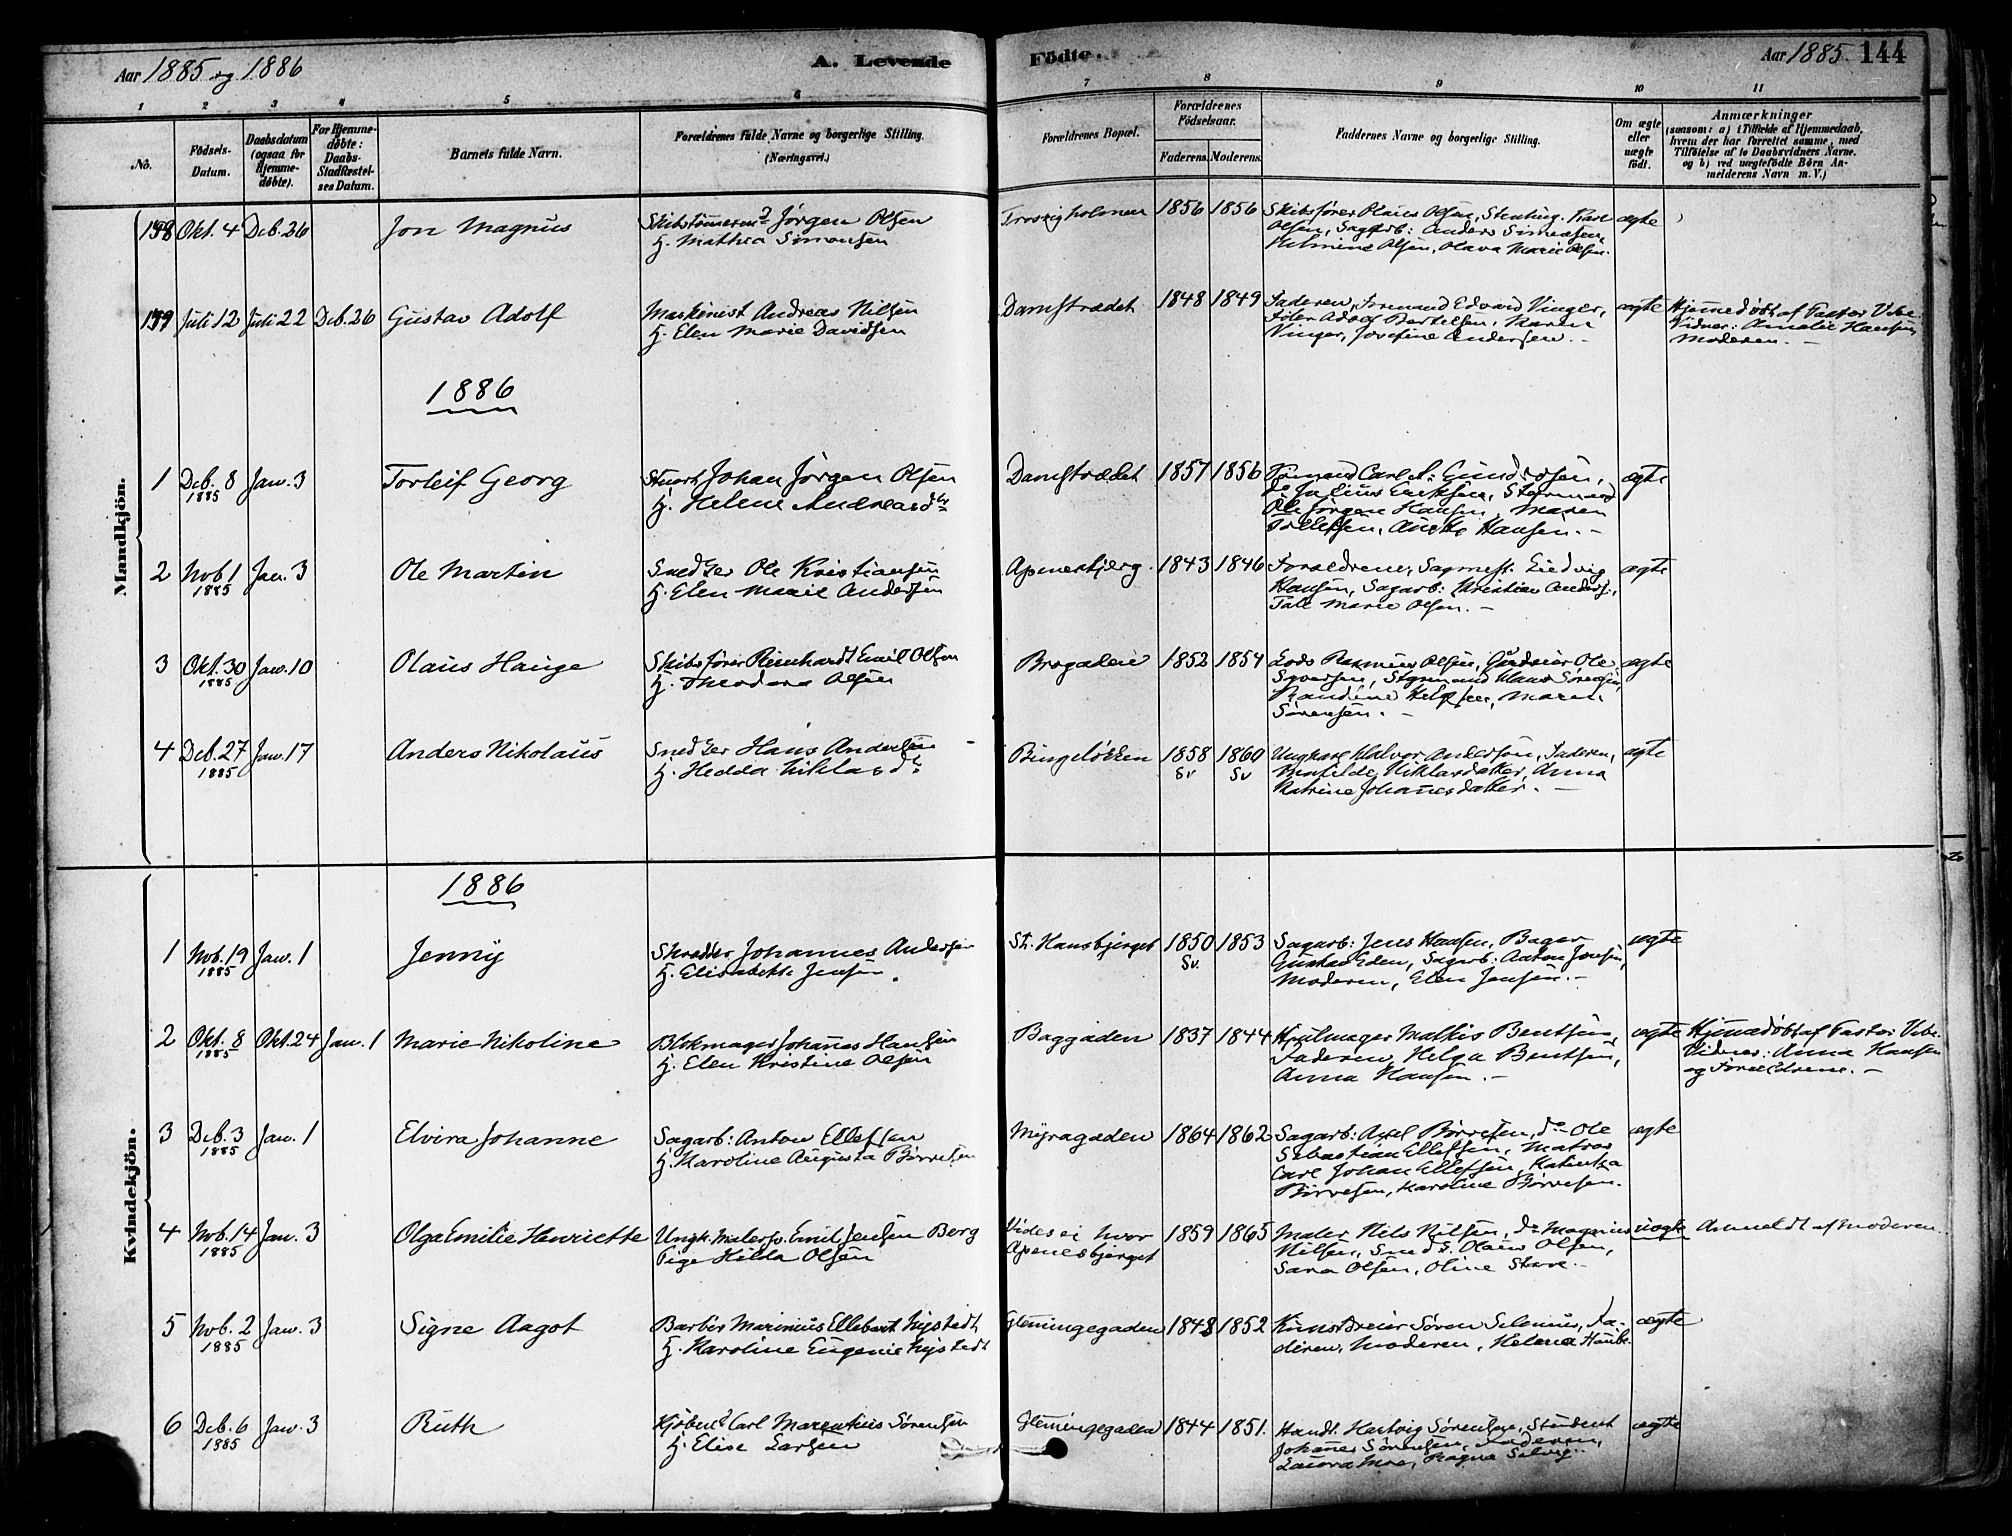 Aar 1885 og 1886
A. Levende
Födte.
Aar 1885 144
1 2 3 4 5 6 7 8 9 10 11
No.
Födsels-
Datum.
Daabsdatum
(ogsaa for
Hjemme-
døbte).
For Hjemme-
døbte:
Daabs-
Stadfæstel-
ses Datum.
Barnets fulde Navn.
Forældrenes fulde Navne og borgerlige Stilling.
(Næringsvei.)
Forældrenes Bopæl.
Forældrenes
Födselsaar.
Faderens. Moderens.
Faddernes Navne og borgerlige Stilling.
Om ægte
eller
uægte
født.
Anmærkninger
(saasom: a) i Tilfælde af Hjemmedaab,
hvem der har forrettet samme, med
Tilföielse af to Daabsvidners Navne.
og b) ved uægtefödte Börn An-
melderens Navn m. V.)
Mandkjön.
158 Okt. 4 Deb. 26 Jon Magnus
Skibstømermd Jörgen Olsen
H. Mathea Simonsen
Trosvigholmen 1856 1856
Skibsfører Olaus Olsen, Karl
Olsen, Sagarb: Anders Simensen,
Helmine Olsen, Olava Marie Olsen.
ægte
159 Juli 12 Juli 22 Deb. 26 Gustav Adolf
Maskinist Andreas Nilsen
H. Elen Marie Davidsen
Damstrædet 1848 1849
Faderen, Formand Edvard Vinger,
Adolf Bertelsen, Maren
Vinger, Josefine Andersen.
ægte
Hjemmedøbt af Pastor Vibe.
Vidner: Amalie Hansen,
Moderen.
1886
1 Deb. 8 Jan. 3 Torleif Georg
1885
Stuert Johan Jörgen Olsen
H. Helene Andreasdtr
Damstrædet 1857 1856
Carl A. Gundersen,
do Julius Eriksen, Styrmand
Ole Jørgen Hansen, Maren
Tollefsen, Hansen.
ægte
2 Nob. 1 Jan. 3 Ole Martin
1885
Snedker Ole Kristiansen
H. Elen Marie Andersen
Apenesbjerg. 1843 1846
Forældrene, Sagmest. Ludvig
Hansen, Sagarb: Kristian Anders.,
Tale Marie Olsen.
ægte
3 Okt. 30 Jan. 10 Olaus Hauge
1885
Skibsfører Reinhardt Emil Olsen
H. Theodora Olsen
Brogaden 1852 1854
Lods Rasmus Olsen, Ole
Syversen, Styrmand Klaus Sörensen,
Randine Helgesen, Maren
Sørensen.
ægte
4 Deb. 27 Jan. 17 Anders Nikolaus
1885
Snedker Hans Andersen
H. Hedda Niklasdtr
Bingeløkken 1858 1860
Sv Sv
Ungkarl Halvor Anderson, Faderen,
Matilde Niklasdatter, Anna
Katrine Johanesdatter.
ægte
Kvindekjön.
1886
1 Nob. 19 Jan. 1 Jenny
1885
Skrædder Johannes Andersen
H. Elisabeth Jensen
St. Hansbjerget 1850 1853
Sv.
Sagarb: Jens Hansen, Bager
Gustav Eden, Sagarb. Anton Jensen,
Moderen, Elen Jensen.
ægte
2 Okt. 8 Okt. 24 Jan. 1 Marie Nikoline
1885
Blokmager Johanes Hansen
H. Elen Kristine Olsen
Baggaden 1837 1844
Hjulmager Mathis Bentsen,
Faderen, Helga Bentsen,
Anna Hansen.
ægte
Hjemedøbt af Pastor Vibe.
Vidner: Anna Hansen
og Forældrene.
3 Deb. 3 Jan. 1 Elvira Johanne
1885
Sagarb: Anton Ellefsen
H. Karoline Augusta Börresen
Myragaden 1864 1862
Sagarb: Axel Børresen, do Ole
Sebastian Ellefsen, Matros
Carl Johan Ellefsen, Katinka
Børresen, Karoline Børresen.
ægte
4 Nob. 14 Jan. 3 Olga Emilie Henriette
1885
Ungk. Malersv. Emil Jensen Berg
Pige Hilda Olsen
Vides ei hvor
Apenesbjerget
1859 1865
Maler Nils Nilsen, do Magnus
Nilsen, Snedk. Olaus Olsen,
Sara Olsen, Oline Stave.
uægte
Anmeldt af Moderen.
5 Nob. 2 Jan. 3 Signe Aagot
1885
Barbér Marinius Ellebert Nystedt
H. Karoline Eugenie Nystedt
Glemingegaden 1848 1852
Kunstdreier Søren Selenius, Fa-
deren, Moderen, Helena Haube.
ægte
6 Deb. 6 Jan. 3 Ruth
1885
Kjøbmd Carl Marentius Sörensen
H. Elise Larsen
Glemingegaden 1844 1851.
Handl. Hartvig Sørensen, Student
Johannes Sørensen, Faderen,
Laura Moe, Ragna Solvig.
ægte